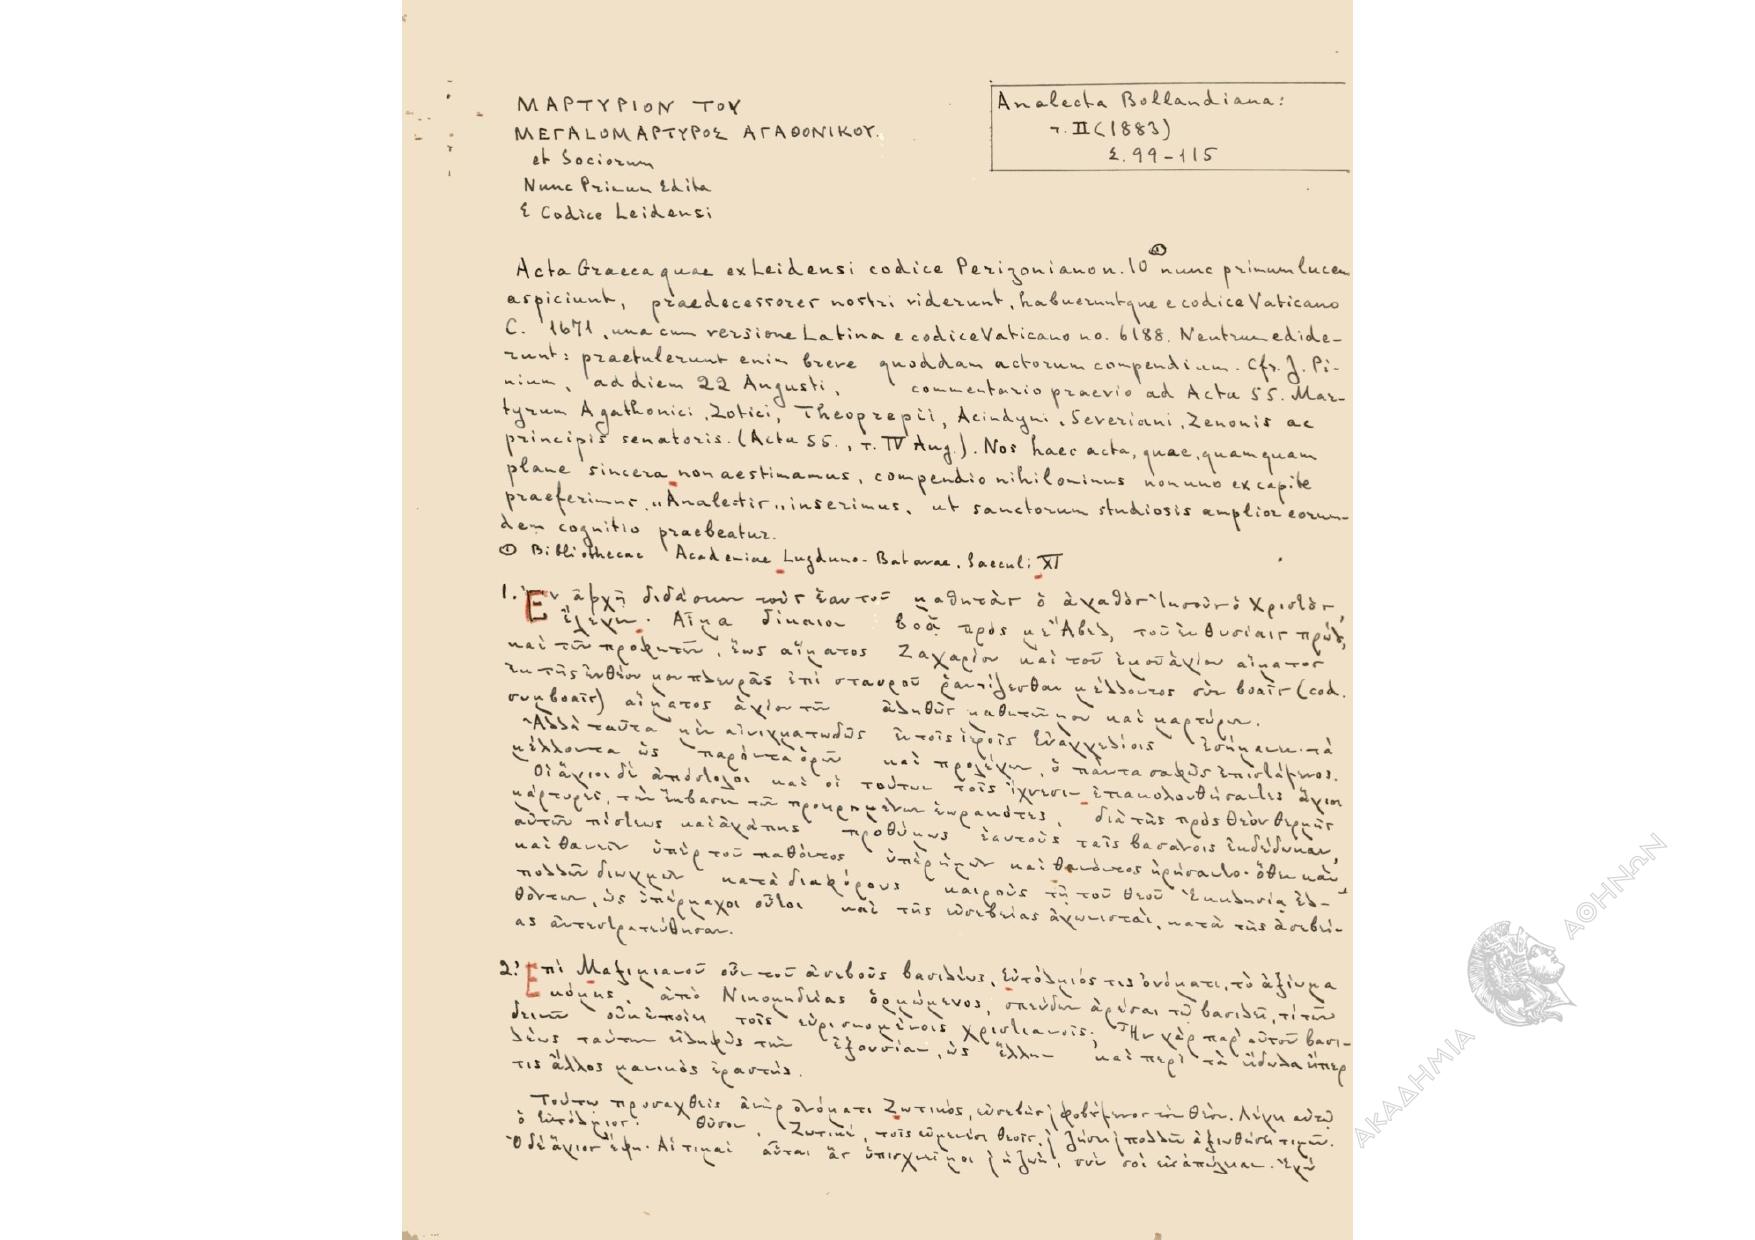 ΜΑΡΤΥΡΙΟΝ ΤΟΥ
ΜΕΓΑLΟΜΑΡΤΥΡΟΣ ΑΓΑΘΟΝΙΚΟΥ.
et Sociorum
Nunc Primum Edita
E Codice Leidensi
Analecta Bollandiana:
τ. II (1883)
Σ. 99-115
Acta Graeca quae ex Leidensi codice Perizoniano n. 10 ① nunc primum lucem
aspiciunt, praedecessores nostri viderunt, habueruntque e codice Vaticano
C. 1671, una cum versione Latina e codice Vaticano no. 6188. Neutrum edide-
runt: praetulerunt enim breve quoddam actorum compendium. Cfr. J. Pi-
nium, ad diem 22 Augusti, commentario praevio ad Acta SS. Mar-
tyrum Agathonici, Zotici, Theoprepii, Acindyni, Severiani, Zenonis ac
principis senatoris. (Acta SS., τ. IV Aug.). Nos haec acta, quae, quamquam
plane sincera non aestimamus, compendio nihilominus non uno ex capite
praeferimus, "Analectis" inserimus, ut sanctorum studiosis amplior eorun-
dem cognitio praebeatur.
① Bibliothecae Academiae Lugduno-Batavae, Saeculi XI
1. Ἐν ἀρχῇ διδάσκων τοὺς ἑαυτοῦ μαθητὰς ὁ ἀγαθὸς Ἰησοῦς ὁ Χριστὸς,
ἔλεγεν. Αἷμα δίκαιον βοᾷ πρός με Ἄβελ, τοῦ ἐν θυσίαις
καὶ τῶν προφητῶν, ἕως αἵματος Ζαχαρίου καὶ τοῦ ἐμοῦ ἁγίου αἵματος
ἐκ τῆς ἐνθέου μου πλευρᾶς ἐπὶ σταυροῦ ῥαντίζεσθαι μέλλοντος σὺν βοαῖς (cod.
συμβοαῖς) αἵματος ἁγίου τῶν ἀληθῶς μαθητῶν μου καὶ μαρτύρων.
Ἀλλὰ ταῦτα μὲν αἰνιγματωδῶς ἐν τοῖς ἱεροῖς Εὐαγγελίοις ἐσήμαινε τὰ
μέλλοντα ὡς παρόντα ὁρῶν καὶ προλέγων, ὁ πάντα σαφῶς ἐπιστάμενος.
Οἱ ἅγιοι δὲ ἀπόστολοι καὶ οἱ τούτων τοῖς ἴχνεσιν ἐπακολουθήσαντες ἅγιοι
μάρτυρες, τὴν ἔκβασιν τῶν προειρημένων ἑωρακότες, διὰ τῆς πρὸς Θεὸν θερμῆς
αὐτῶν πίστεως καὶ ἀγάπης προθύμως ἑαυτοὺς ταῖς βασάνοις ἐκδέδωκαν,
καὶ θανεῖν ὑπὲρ τοῦ παθόντος ὑπὲρ ἡμῶν καὶ θανόντος ᾑρήσαντο· ὅθεν καὶ
πολλῶν διωγμῶν κατὰ διαφόρους καιροὺς τῇ τοῦ Θεοῦ Ἐκκλησίᾳ ἐλ-
θόντων, ὡς ὑπέρμαχοι οὗτοι καὶ τῆς εὐσεβείας ἀγωνισταὶ, κατὰ τῆς ἀσεβεί-
ας ἀντεστρατεύθησαν.
2. Ἐπὶ Μαξιμιανοῦ οὖν τοῦ ἀσεβοῦς βασιλέως, Εὐτόλμιός τις ὀνόματι, τὸ ἀξίωμα
κόμης, ἀπὸ Νικομηδείας ὁρμώμενος, σπεύδων ἀρέσαι τῷ βασιλεῖ, τί τῶν
δεινῶν οὐκ ἐποίει τοῖς εὑρισκομένοις χριστιανοῖς; Ἦν γὰρ παρ' αὐτοῦ βασι-
λέως ταύτην εἰληφὼς τὴν ἐξουσίαν, ὡς Ἕλλην καὶ περὶ τὰ εἴδωλα εἴπερ
τις ἄλλος μανικὸς ἐραστής.
Τούτῳ προσαχθεὶς ἀνὴρ ὀνόματι Ζωτικὸς, εὐσεβὴς φοβούμενος τὸν Θεόν. Λέγει αὐτῷ
ὁ Εὐτόλμιος· Θῦσον, Ζωτικὲ, τοῖς εὐμενέσι θεοῖς, ζήσῃ πολλῶν ἀξιωθήσῃ τιμῶν.
Ὁ δὲ ἅγιος ἔφη· Αἱ τιμαὶ αὗται ἃς ὑπισχνεῖ μοι ἡ ζωὴ, σὺν σοὶ Ἐγὼ
ΑΚΑΔΗΜΙΑ ΑΘΗΝΩΝ